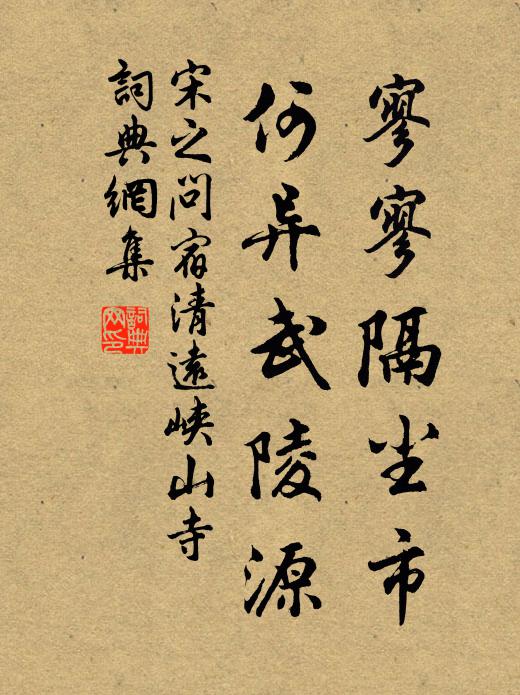 寥寥隔尘市
何异武陵源
宋之问宿清遠峡山寺
詞典網集
詞典网印